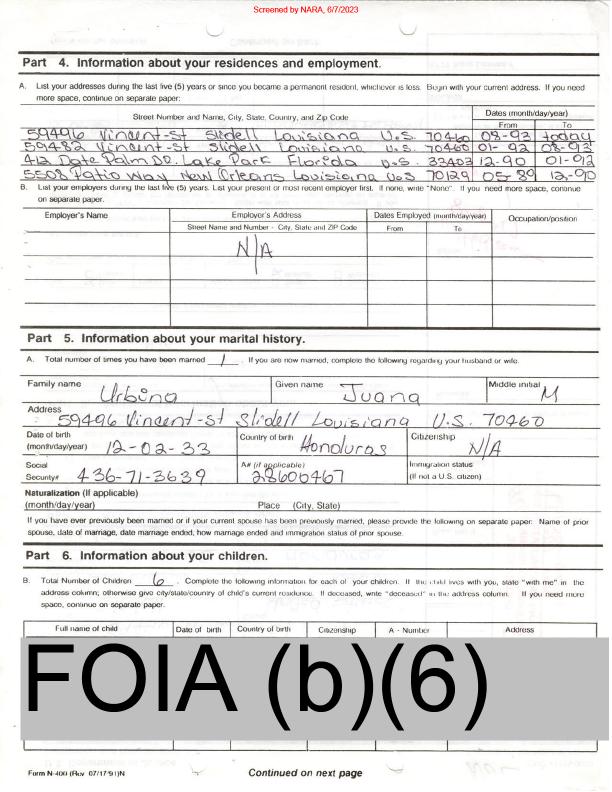 Screened by NARA, 6/7/2023
Part 4. Information about your residences and employment.
A. List your addresses during the last five (5) years or since you became a permanent resident, whichever is less. Begin with your current address. If you need
more space, continue on separate paper:
Street Number and Name, City, State, Country, and Zip Code
Dates (month/day/year)
From To
59496 Vincent-St Slidell Louisiana U.S. 70460 08-93 today
59482 Vincent-St Slidell Louisiana U.S. 70460 01-92 08-93
412 Date Palm DR. Lake Park Florida U.S. 33403 12-90 01-92
5508 Patio Way New Orleans Louisiana U.S 70129 05-89 12-90
B. List your employers during the last five (5) years. List your present or most recent employer first. If none, write "None". If you need more space, continue
on separate paper.
Employer's Name Employer's Address Dates Employed (month/day/year) Occupation/position
Street Name and Number - City, State and ZIP Code From To
N/A
Part 5. Information about your marital history.
A. Total number of times you have been married 1 . If you are now married, complete the following regarding your husband or wife.
Family name Urbina Given name Juana Middle initial M
Address
59496 Vincent-St Slidell Louisiana U.S. 70460
Date of birth
(month/day/year) 12-02-33 Country of birth Honduras Citizenship N/A
Social
Security# 436-71-3639 A# (if applicable) 28600467 Immigration status
(If not a U.S. citizen)
Naturalization (If applicable)
(month/day/year) Place (City, State)
If you have ever previously been married or if your current spouse has been previously married, please provide the following on separate paper: Name of prior
spouse, date of marriage, date marriage ended, how marriage ended and immigration status of prior spouse.
Part 6. Information about your children.
B. Total Number of Children 6 . Complete the following information for each of your children. If the child lives with you, state "with me" in the
address column; otherwise give city/state/country of child's current residence. If deceased, write "deceased" in the address column. If you need more
space, continue on separate paper.
Full name of child Date of birth Country of birth Citizenship A - Number Address
FOIA (b)(6)
Form N-400 (Rev 07/17/91)N
Continued on next page